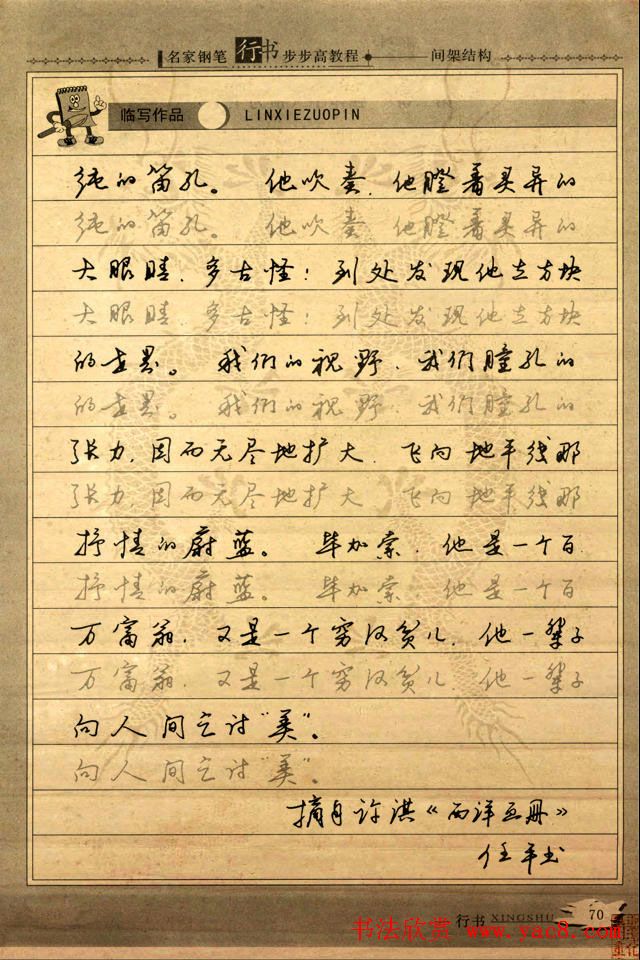 名家钢笔行书步步高教程 间架结构
临写作品 LINXIEZUOPIN
纯的笛孔。 他吹奏，他瞪着灵异的
纯的笛孔。 他吹奏，他瞪着灵异的
大眼睛，多古怪！到处发现他立方块
大眼睛，多古怪！到处发现他立方块
的世界。 我们的视野，我们瞳孔的
的世界。 我们的视野，我们瞳孔的
张力，因而无尽地扩大，飞向地平线那
张力，因而无尽地扩大，飞向地平线那
抒情的蔚蓝。 毕加索，他是一个百
抒情的蔚蓝。 毕加索，他是一个百
万富翁，又是一个穷汉贫儿，他一辈子
万富翁，又是一个穷汉贫儿，他一辈子
向人间乞讨“美”。
向人间乞讨“美”。
摘自许淇《西洋画册》
任平书
行书 XINGSHU 70
书法欣赏 www.yac8.com